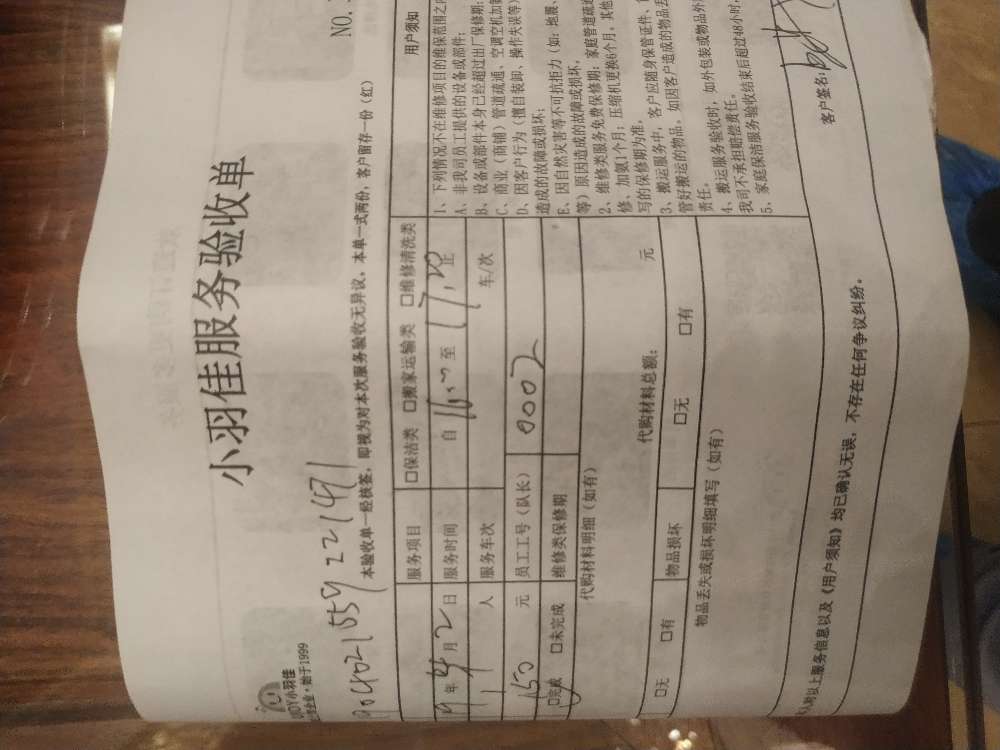 小羽佳服务验收单
NO.
小羽佳
始于1999
本验收单一经核签，即视为对本次服务验收无异议，本单一式两份，客户留存一份（红）
服务项目 □保洁类 □搬家运输类 □维修清洗类
19年4月2日 服务时间 自 16:00 至 17:20 止
1人 服务车次 车/次
150元 员工工号（队长） 0002
□完成 □未完成 维修类保修期
代购材料明细（如有）
代购材料总额： 元
□无 □有 物品损坏 □无 □有
物品丢失或损坏明细填写（如有）
用户须知
1、下列情况不在维修项目的维保范围之内
A、非我司员工提供的设备或部件；
B、设备或部件本身已经超过出厂保修期；
C、商业（商铺）管道疏通、空调空机加氨
D、因客户行为（擅自装卸、操作失误等）
造成的故障或损坏；
E、因自然灾害等不可抗拒力（如：地震、
等）原因造成的故障或损坏。
2、维修类服务免费保修期：家庭管道疏通
修、加氨1个月；压缩机更换6个月。其他
写的保修期为准。
3、搬运服务中，客户应随身保管证件、
管好搬运的物品。如因客户造成的物品丢
责任。
4、搬运服务验收时，如外包装或物品外
我司不承担赔偿责任。
5、家庭保洁服务验收结束后超过48小时，
对以上服务信息以及《用户须知》均已确认无误，不存在任何争议纠纷。
客户签名：